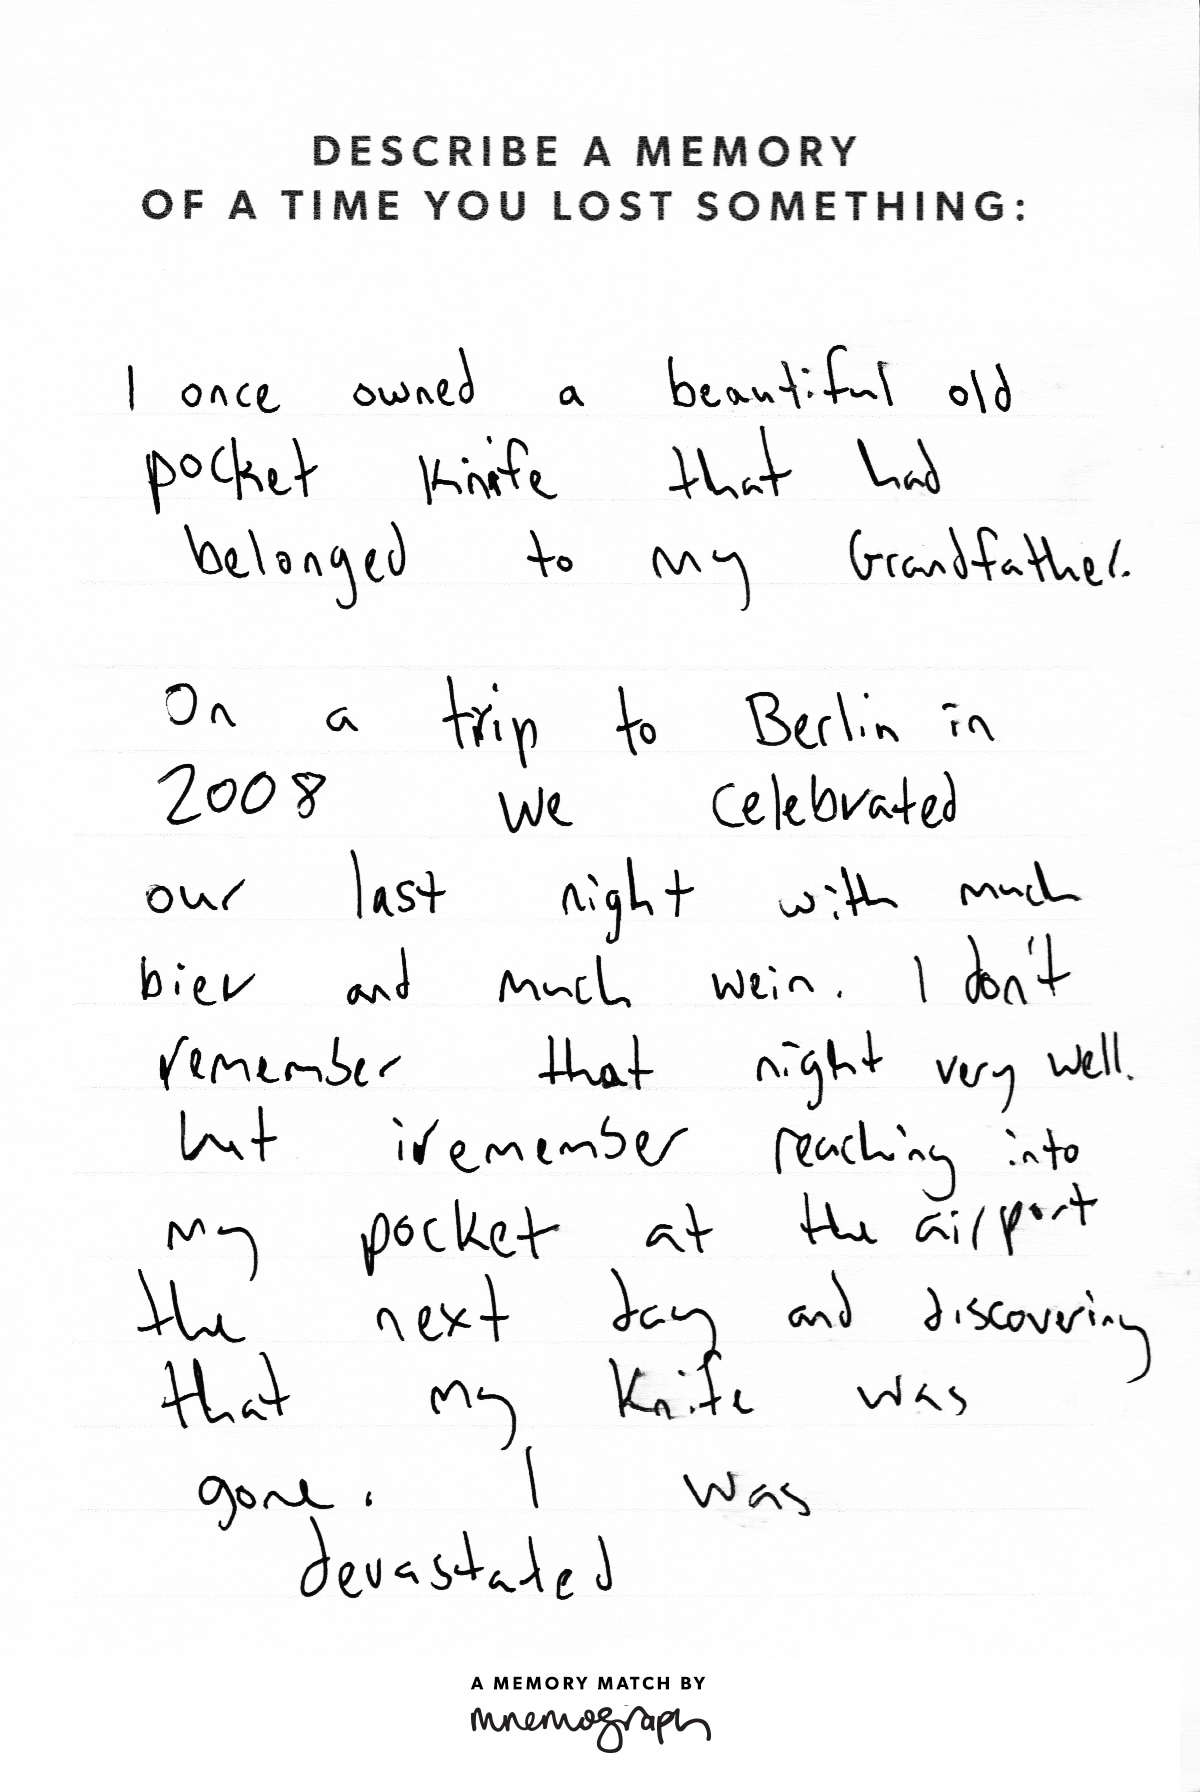 DESCRIBE A MEMORY
OF A TIME YOU LOST SOMETHING:
I once owned a beautiful old
pocket knife that had
belonged to my Grandfather.
On a trip to Berlin in
2008 we celebrated
our last night with much
bier and much wein. I don't
remember that night very well.
but i remember reaching into
my pocket at the airport
the next day and discovering
that my knife was
gone. I was
devastated
A MEMORY MATCH BY
mnemograph